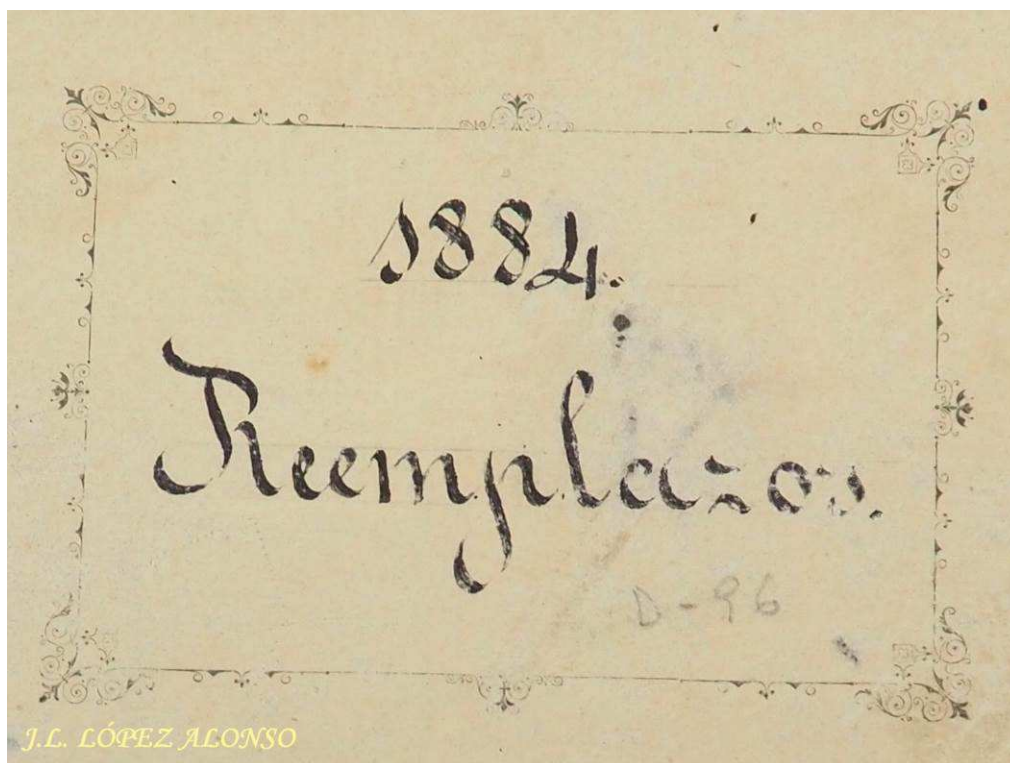 1884.
Reemplazos.
D-96
J.L. LÓPEZ ALONSO